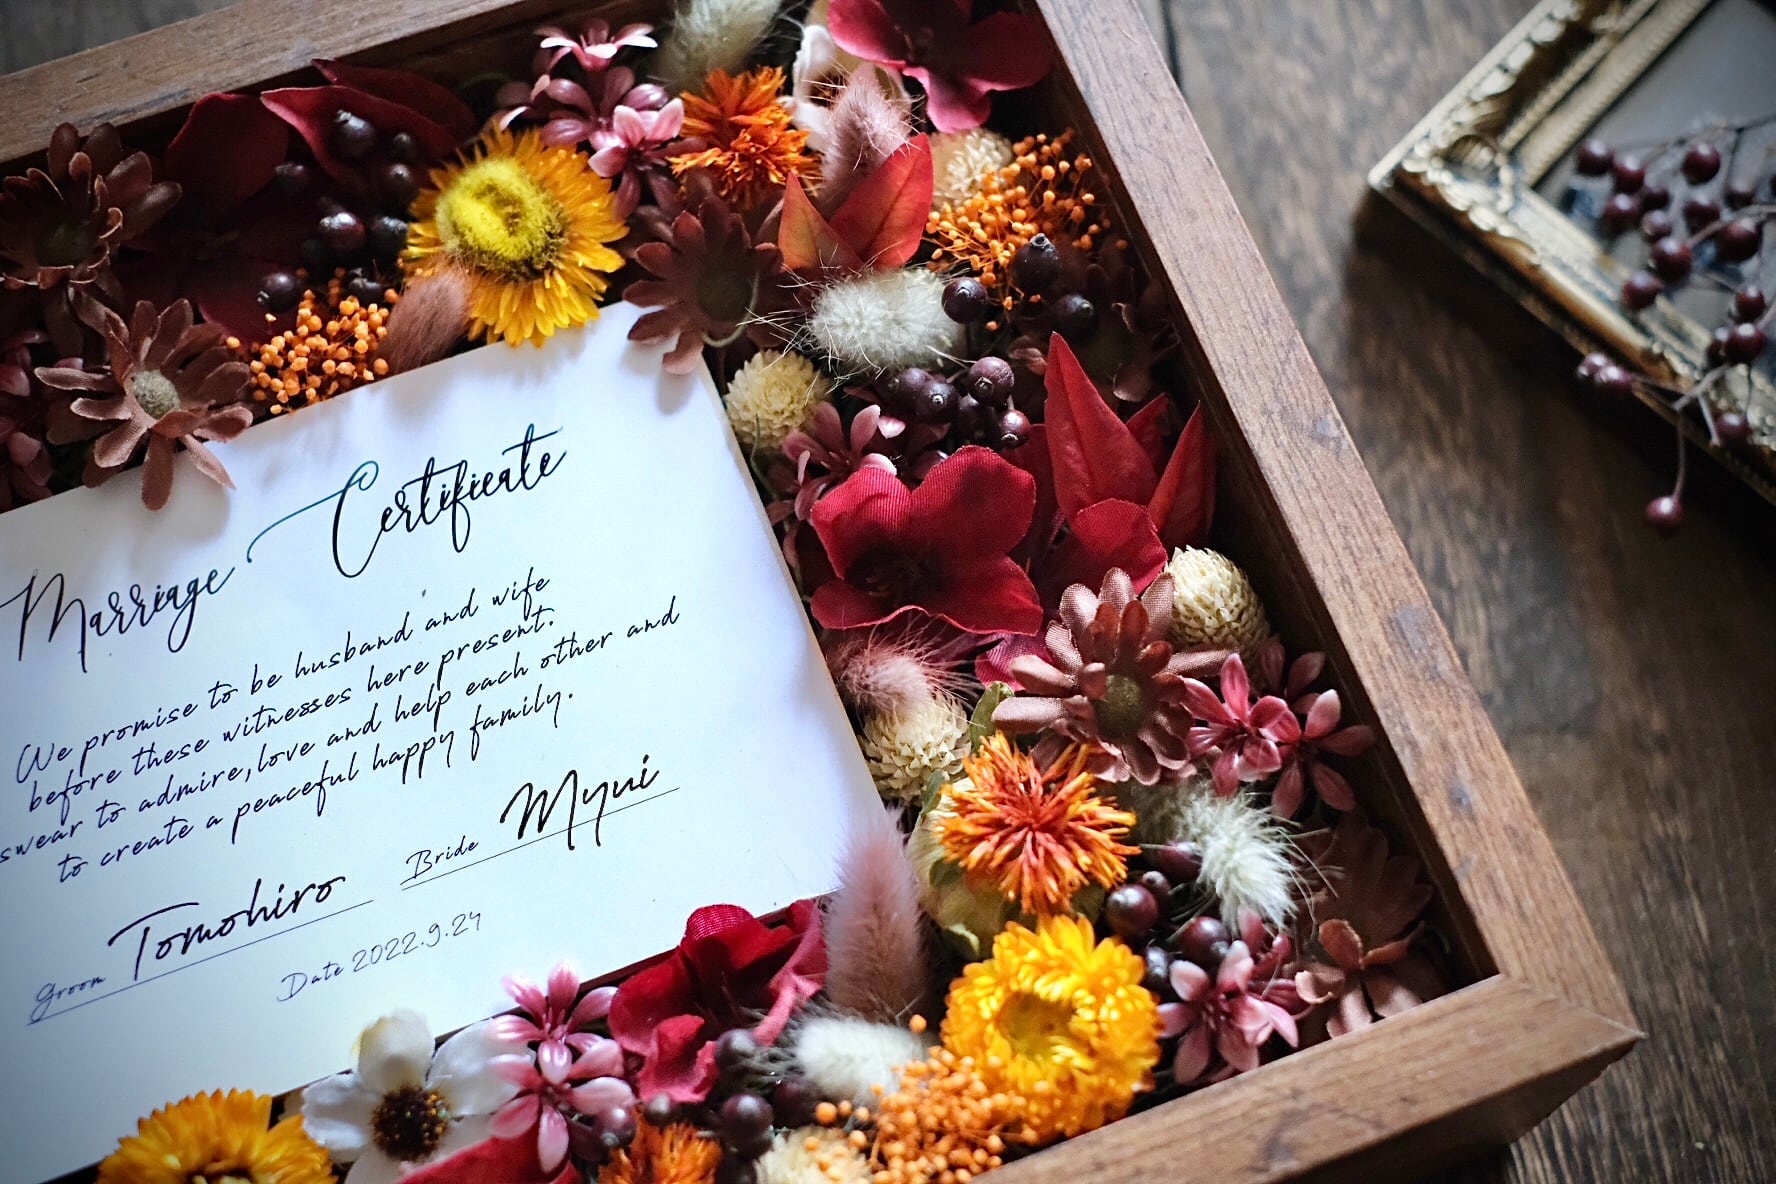 Marriage Certificate
We promise to be husband and wife
before these witnesses here present.
swear to admire, love and help each other and
to create a peaceful happy family.
Groom Tomohiro Bride Myui
Date 2022.9.24